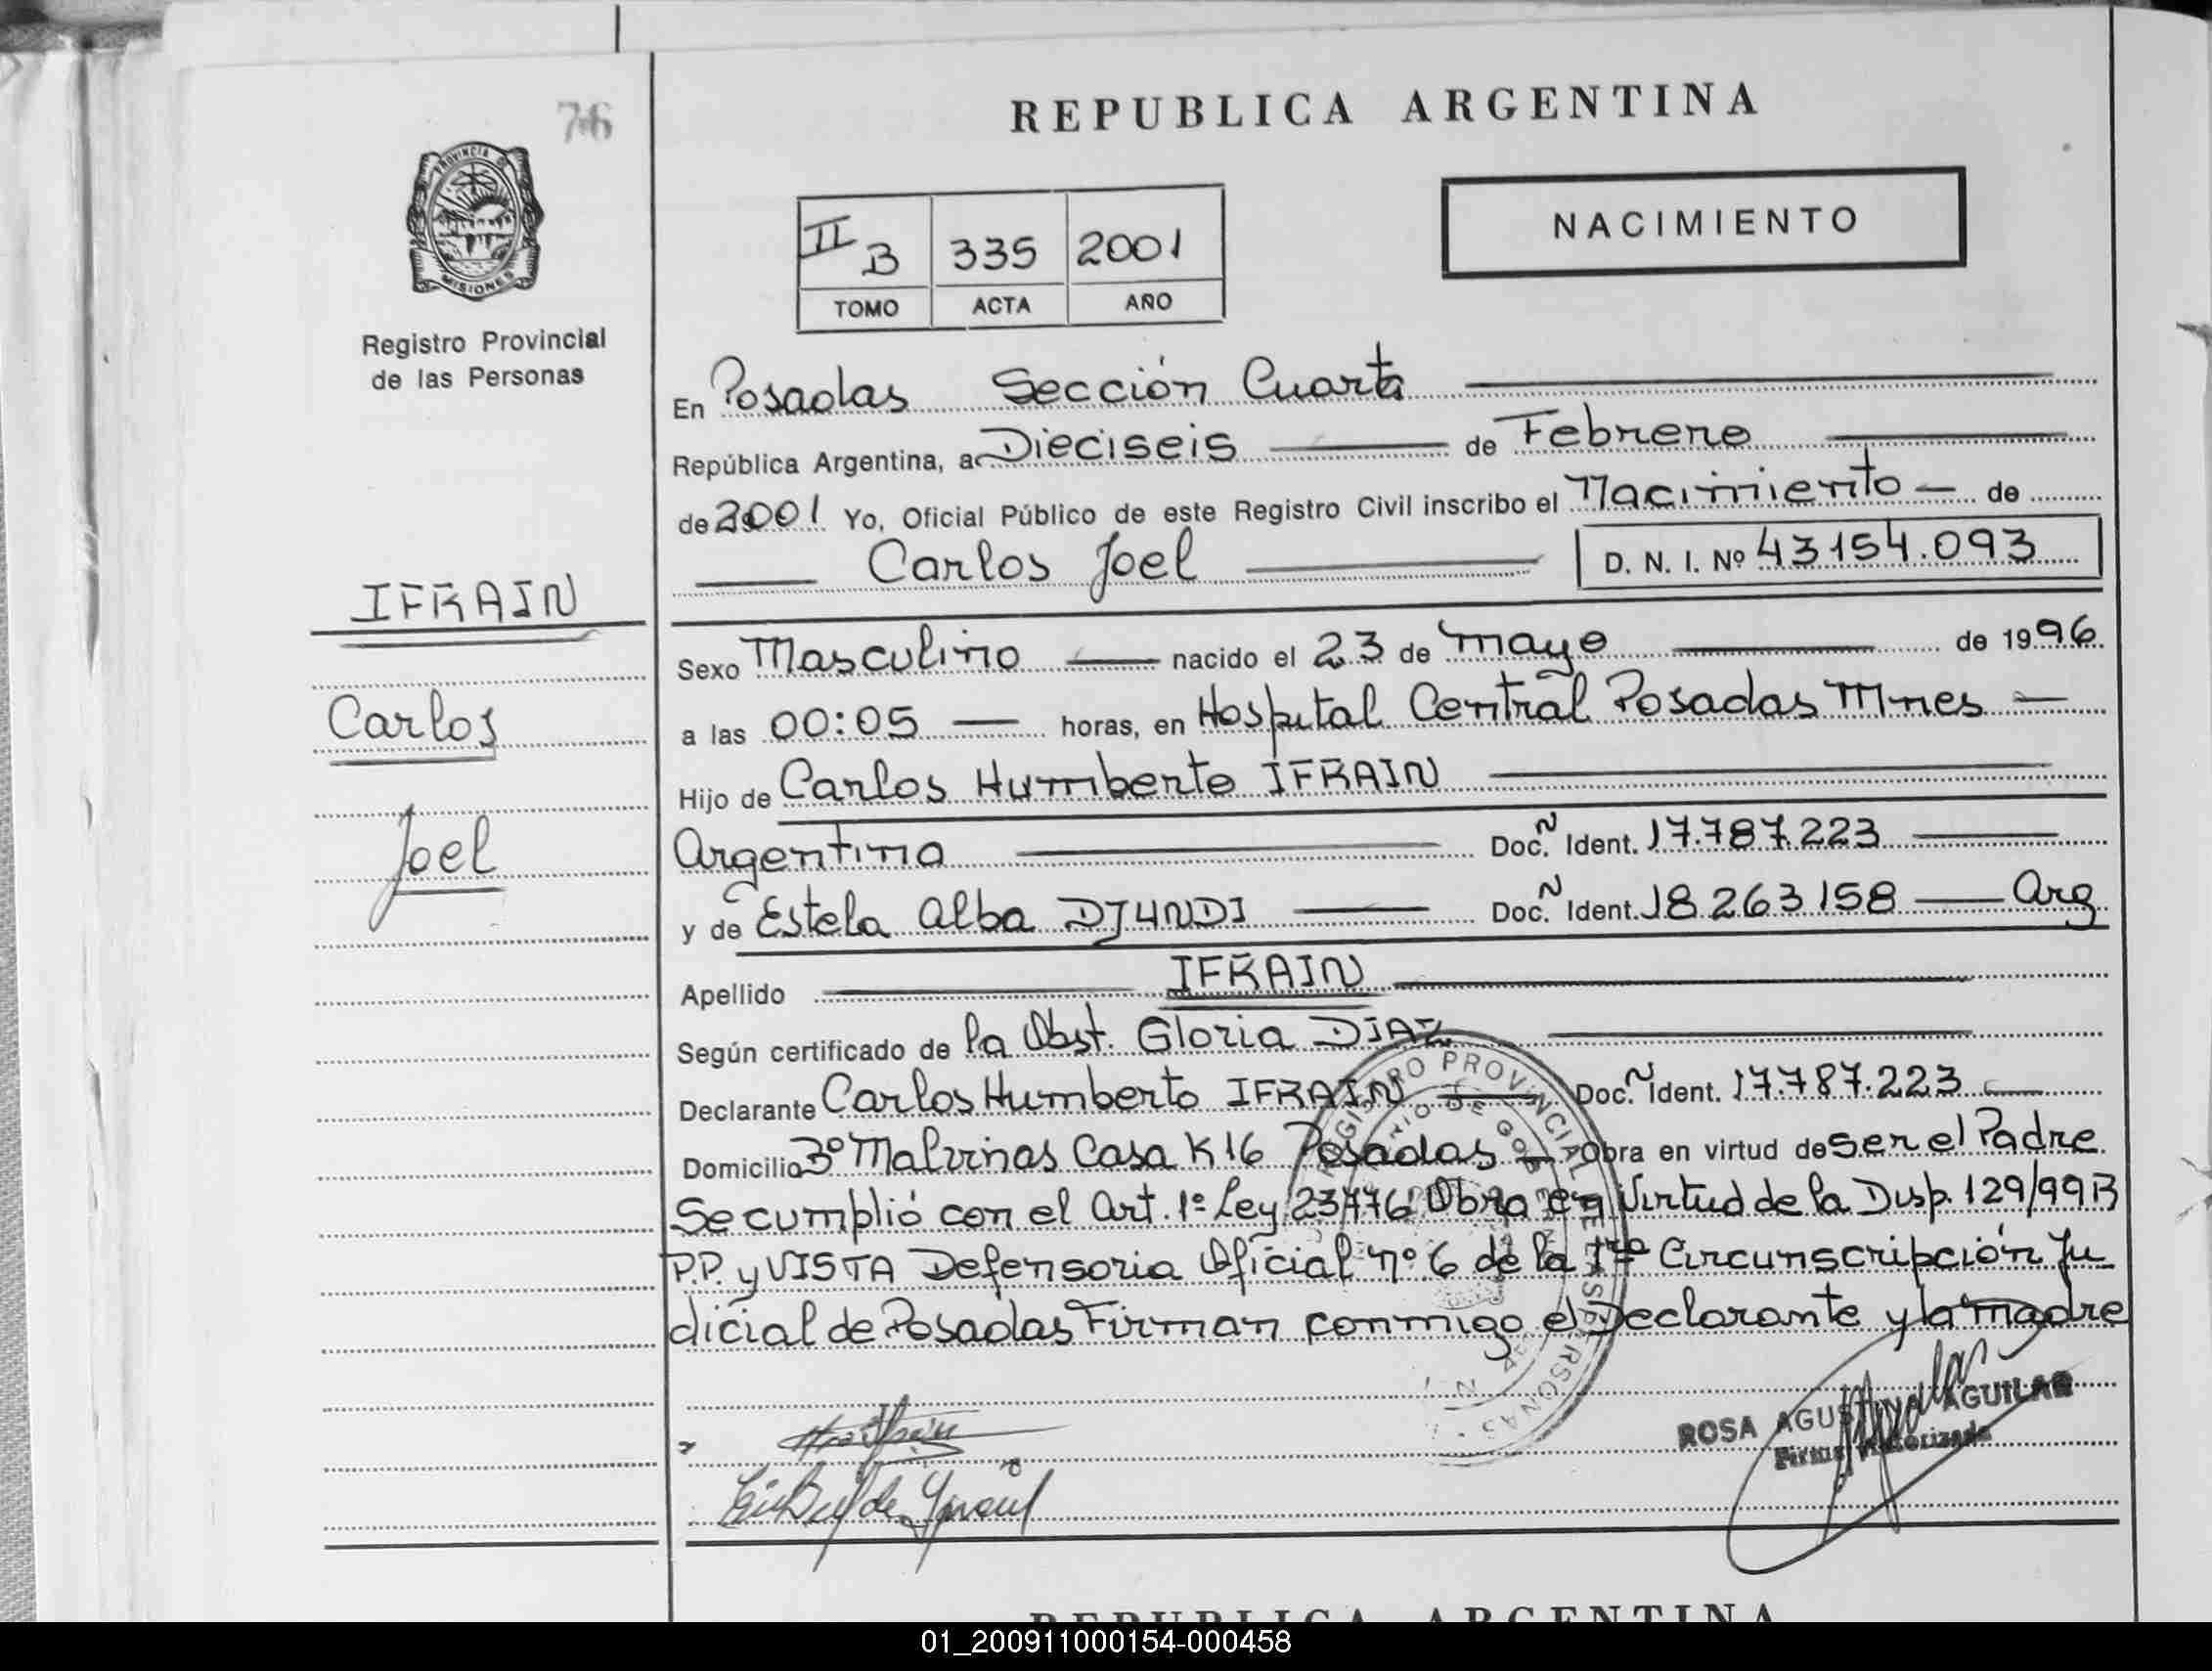 76
REPUBLICA ARGENTINA
PROVINCIA DE
MISIONES
Registro Provincial
de las Personas
II B 335 2001
TOMO ACTA AÑO
NACIMIENTO
En Posadas Sección Cuarta
República Argentina, a Dieciseis de Febrero
de 2001 Yo, Oficial Público de este Registro Civil inscribo el Nacimiento de
Carlos Joel D. N. I. Nº 43154.093
IFRAIN
Carlos
Joel
Sexo Masculino nacido el 23 de mayo de 1996
a las 00:05 horas, en Hospital Central Posadas Mnes
Hijo de Carlos Humberto IFRAIN
Argentino Doc. Ident. 17.787.223
y de Estela Alba DJUNDI Doc. Ident. 18.263.158 Arg
Apellido IFRAIN
Según certificado de la Obst. Gloria DIAZ
Declarante Carlos Humberto IFRAIN Doc. Ident. 17.787.223
Domicilio 3º Malvinas Casa K 16 Posadas Obra en virtud de ser el Padre
Se cumplió con el Art. 1º Ley 23776 Obra en Virtud de la Disp. 129/99 B
P.P. y VISTA Defensoria Oficial nº 6 de la 1ra Circunscripción Ju
dicial de Posadas Firman conmigo el Declarante y la madre
ROSA AGUSTINA AGUILAR
Firma Autorizada
REPUBLICA ARGENTINA
01_200911000154-000458